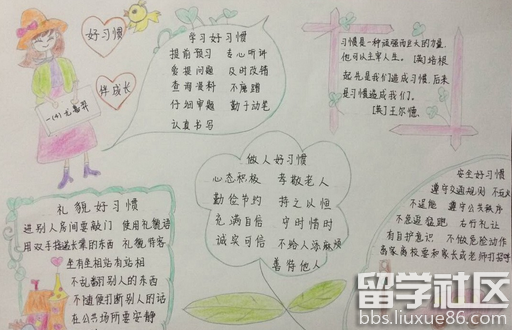 好习惯
伴成长
学习好习惯
提前预习 专心听讲
善提问题 及时改错
查询资料 不磨蹭
仔细审题 勤于动笔
认真书写
习惯是一种顽强而巨大的力量,
他可以主宰人生。 [英]培根
起先是我们造成习惯,后来
是习惯造成我们。
[英]王尔德
做人好习惯
心态积极 孝敬老人
勤俭节约 持之以恒
充满自信 守时惜时
诚实可信 不给人添麻烦
善待他人
礼貌好习惯
进别人房间要敲门 使用礼貌语
用双手接递长辈的东西 礼貌待客
坐有坐相站有站相
不乱翻别人的东西
不随便打断别人的话
在公共场所要安静
安全好习惯
遵守交通规则 不玩火
不逗能 遵守公共秩序
不急追猛跑 右行礼让
有自护意识 不做危险动作
离家离校要和家长或老师打招呼
留学社区
bbs.liuxue86.com